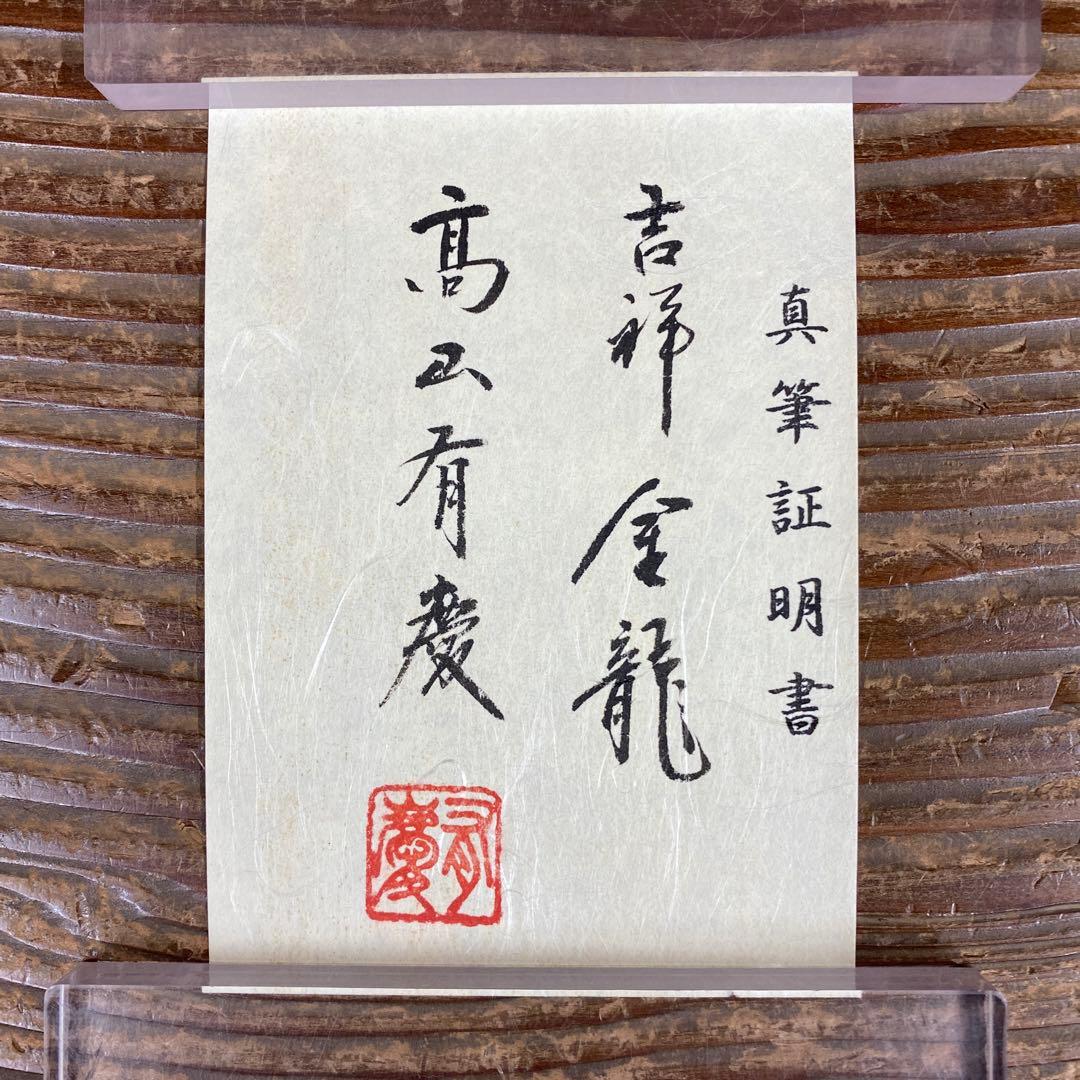 真筆証明書
吉祥金龍
髙玉有慶
有慶